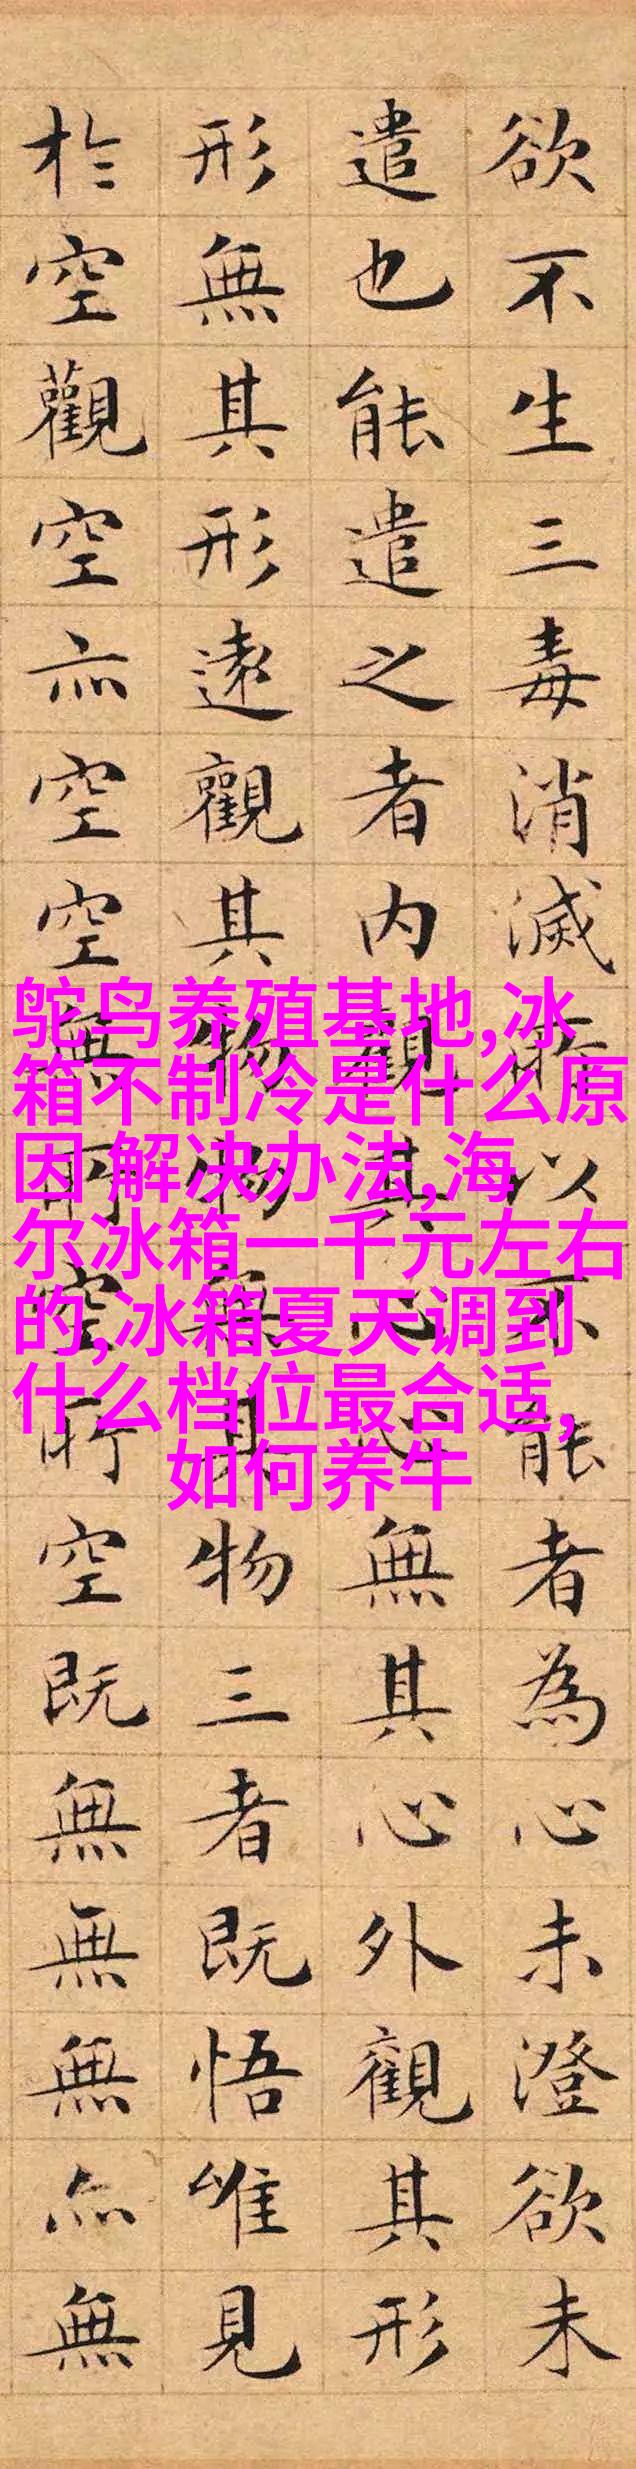 欲不生三毒消滅所以不能者為心未澄欲未
遣也能遣之者内觀其心心無其心外觀其形
形無其形遠觀其物物無其物三者既悟唯見
於空觀空亦空空無所空所空既無無無亦無
鸵鸟养殖基地,冰
箱不制冷是什么原
因 解决办法,海
尔冰箱一千元左右
的,冰箱夏天调到
什么档位最合适,
如何养牛